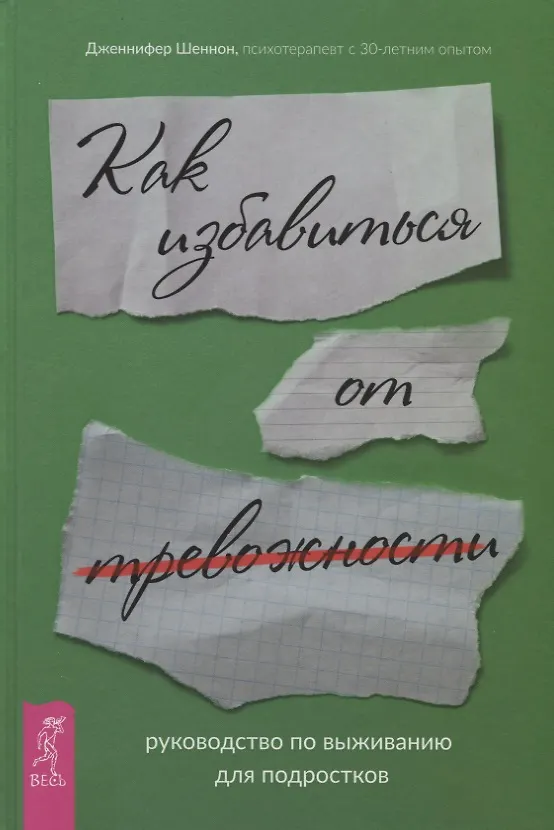 Дженнифер Шеннон, психотерапевт с 30-летним опытом
Как
избавиться
от
тревожности
руководство по выживанию
для подростков
ВЕСЬ